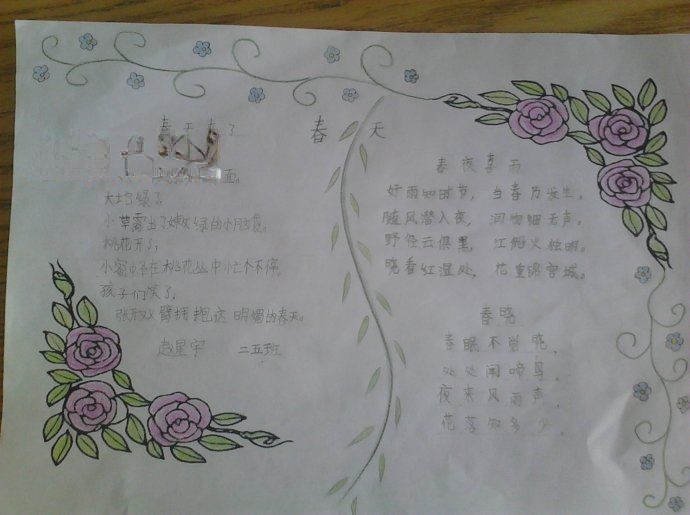 春天
春天来了
面。
大地绿了
小草露出了嫩绿的小脑袋。
桃花开了,
小蜜蜂在桃花丛中忙个不停。
孩子们笑了,
张开双臂拥抱这明媚的春天。
赵星宇 二五班
春夜喜雨
好雨知时节, 当春乃发生。
随风潜入夜, 润物细无声。
野径云俱黑, 江船火独明。
晓看红湿处, 花重锦官城。
春晓
春眠不觉晓,
处处闻啼鸟,
夜来风雨声,
花落知多少。